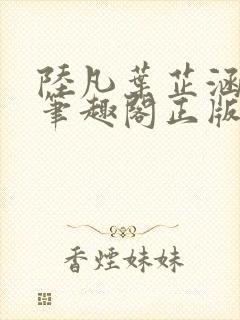 陸凡葉芷涵
筆趣閣正版
香煙妹妹